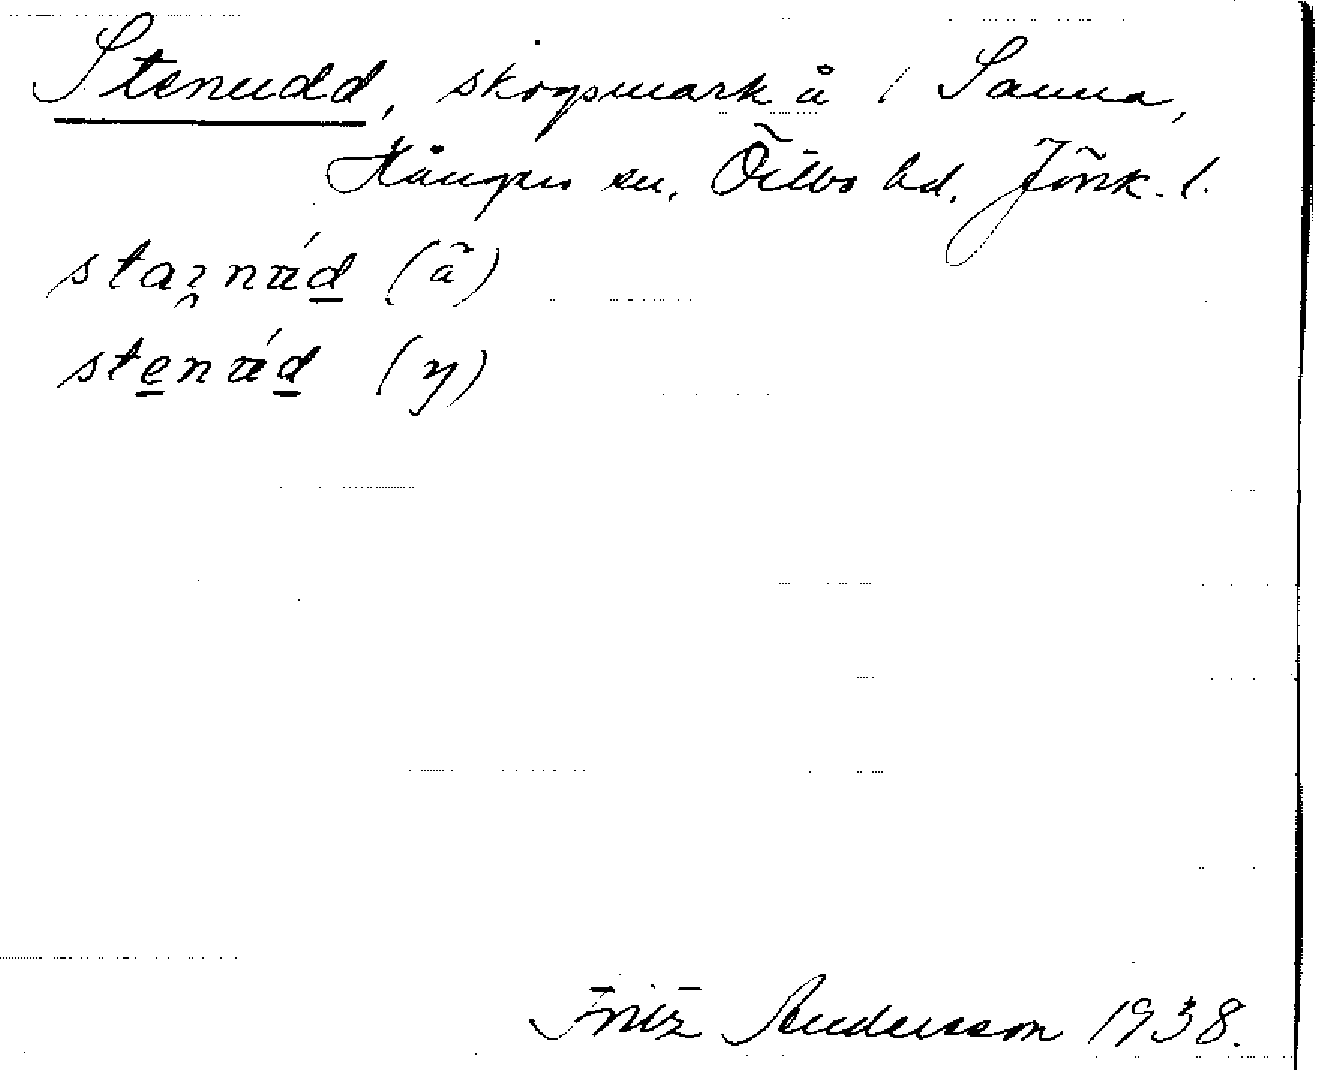 Stenudd, skogsmark å / Sanna,
Hångers sn, Östbo hd, Jönk. l.
staɿnúd (ä)
stenúd (y)
Fritz Andersson 1938.